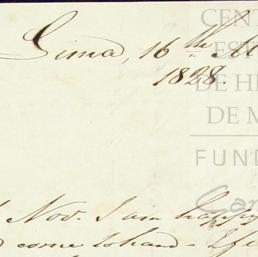 Lima, 16th
1828.
CENT
EST
DE H
DE M
FUND
Car
Nov. I am happy
come to hand